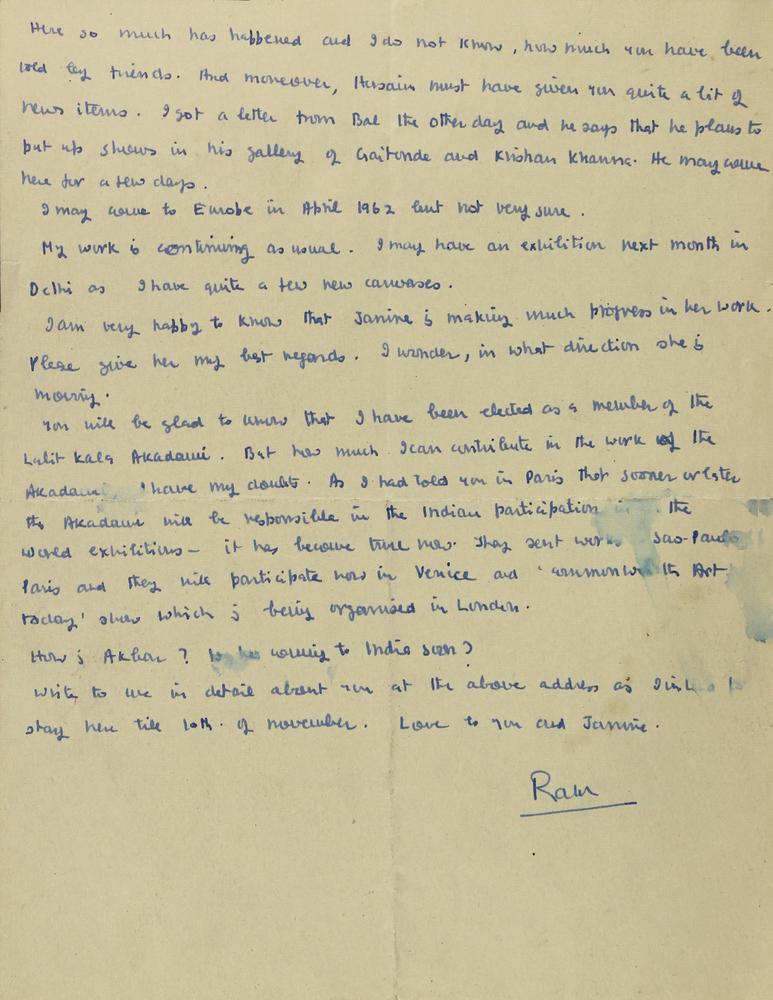 Here so much has happened and I do not know, how much you have been
told by friends. And moreover, Husain must have given you quite a lit of
news items. I got a letter from Bal the other day and he says that he plans to
put up shows in his gallery of Gaitonde and Krishan Khanna. He may come
here for a few days.
I may come to Europe in April 1962 but not very sure.
My work is continuing as usual. I may have an exhibition next month in
Delhi as I have quite a few new canvases.
I am very happy to know that Janine is making much progress in her work.
Please give her my best regards. I wonder, in what direction she is
moving.
You will be glad to know that I have been elected as a member of the
Lalit Kala Akadami. But how much I can contribute in the work of the
Akadami, I have my doubts. As I had told you in Paris that sooner or later
the Akadami will be responsible in the Indian participation in the
world exhibitions — it has become true now. They sent works Sao-Paulo
Paris and they will participate now in Venice and 'Commonwealth Art
today' show which is being organised in London.
How is Akbar? Is he coming to India soon?
Write to me in detail about you at the above address as I to
stay here till 10th. of november. Love to you and Janine.
Ram